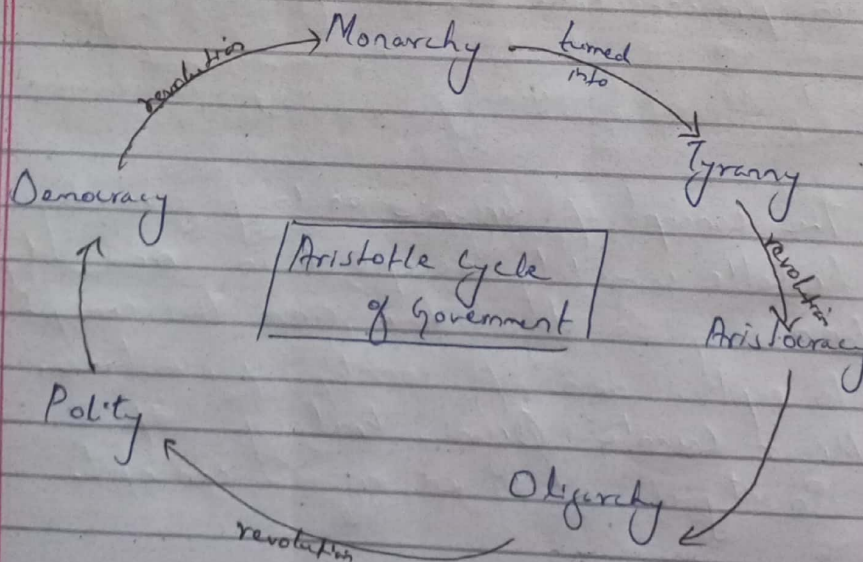 Monarchy
turned
into
Tyranny
revolution
Aristocracy
Oligarchy
revolution
Polity
Democracy
revolution
Aristotle Cycle
of Government